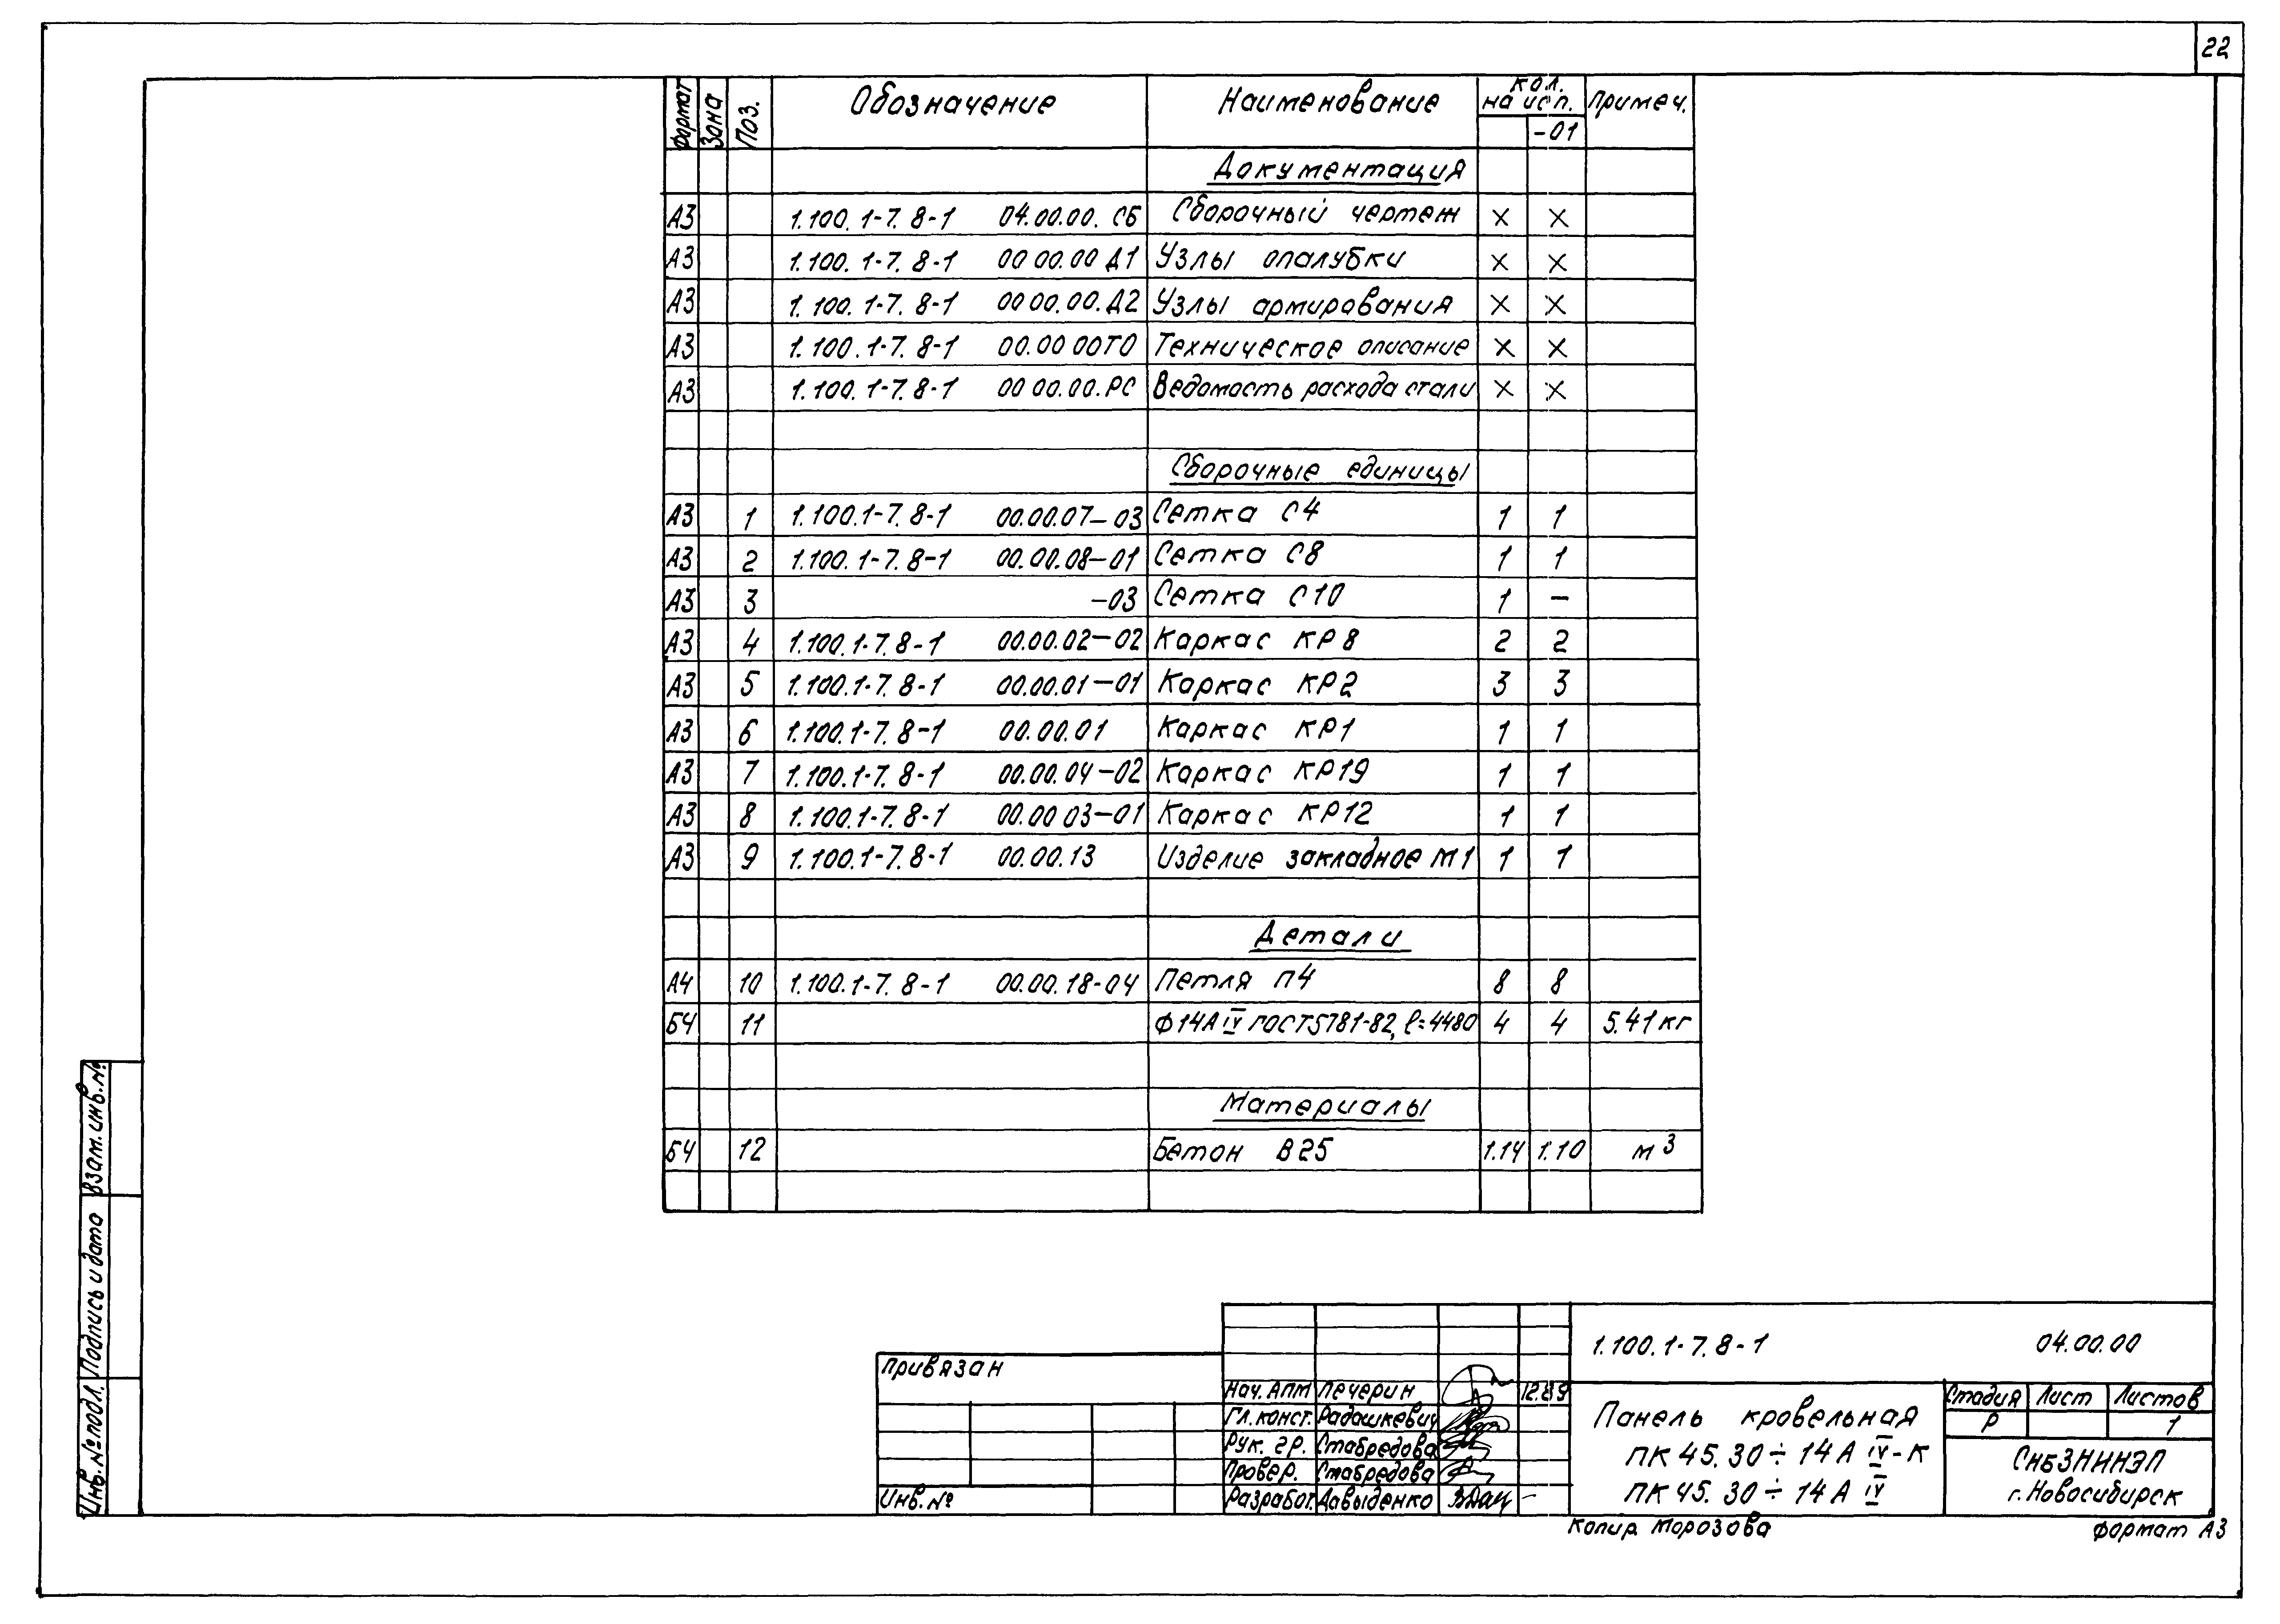 22
Формат Зона Поз. Обозначение Наименование Кол. на исп. Примеч.
-01
Документация
А3 1.100.1-7.8-1 04.00.00.СБ Сборочный чертеж × ×
А3 1.100.1-7.8-1 00 00.00 Д1 Узлы опалубки × ×
А3 1.100.1-7.8-1 00 00.00.Д2 Узлы армирования × ×
А3 1.100.1-7.8-1 00.00 00ТО Техническое описание × ×
А3 1.100.1-7.8-1 00 00.00.РС Ведомость расхода стали × ×
Сборочные единицы
А3 1 1.100.1-7.8-1 00.00.07-03 Сетка С4 1 1
А3 2 1.100.1-7.8-1 00.00.08-01 Сетка С8 1 1
А3 3 -03 Сетка С10 1 –
А3 4 1.100.1-7.8-1 00.00.02-02 Каркас КР8 2 2
А3 5 1.100.1-7.8-1 00.00.01-01 Каркас КР2 3 3
А3 6 1.100.1-7.8-1 00.00.01 Каркас КР1 1 1
А3 7 1.100.1-7.8-1 00.00.04-02 Каркас КР19 1 1
А3 8 1.100.1-7.8-1 00.00 03-01 Каркас КР12 1 1
А3 9 1.100.1-7.8-1 00.00.13 Изделие закладное М1 1 1
Детали
А4 10 1.100.1-7.8-1 00.00.18-04 Петля П4 8 8
БЧ 11 Ф14АIV ГОСТ5781-82, ℓ=4480 4 4 5.41кг
Материалы
БЧ 12 Бетон В25 1.14 1.10 м³
Взам.инв.№
Подпись и дата
Инв.№ подл.
Привязан
Инв.№
Нач. АПМ Печерин 12.89
Гл.конст. Радашкевич
Рук. гр. Стабредова
Провер. Стабредова
Разработ. Давыденко
1.100.1-7.8-1 04.00.00
Панель кровельная
ПК 45.30÷14А IV-К
ПК 45.30÷14А IV
Стадия Лист Листов
Р 1
СибЗНИИЭП
г.Новосибирск
Копир. Морозова
Формат А3